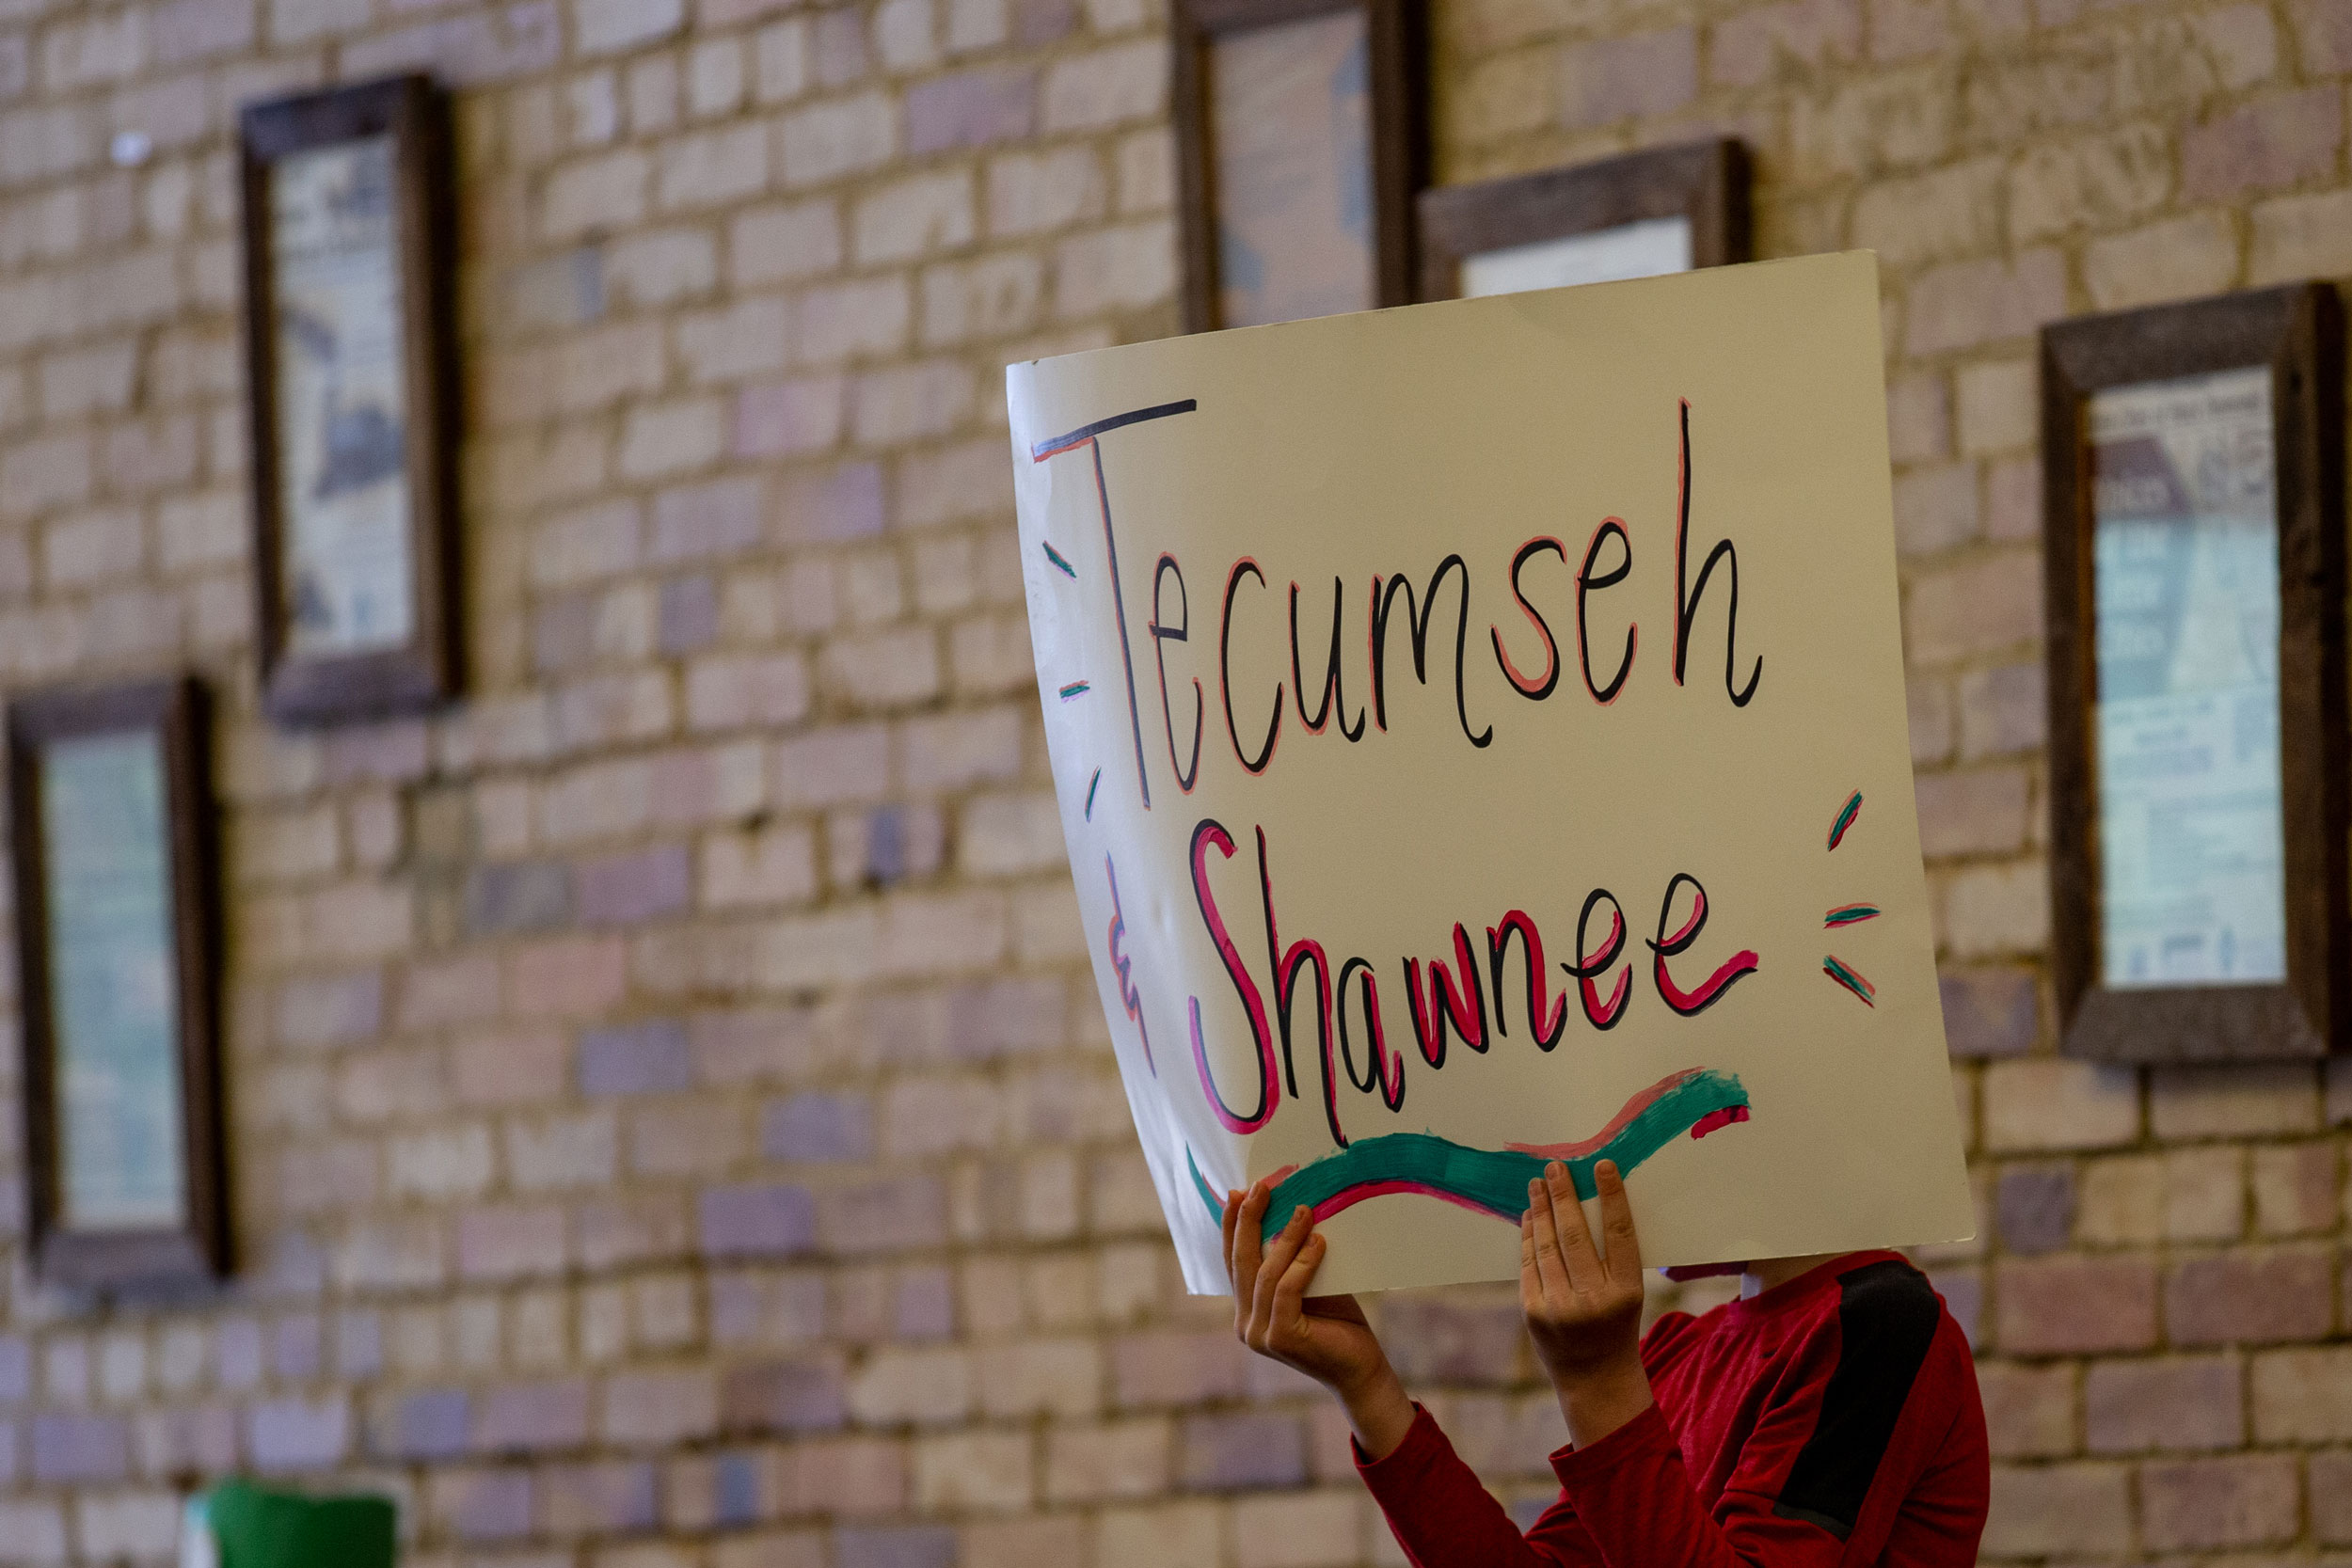 Tecumseh
& Shawnee